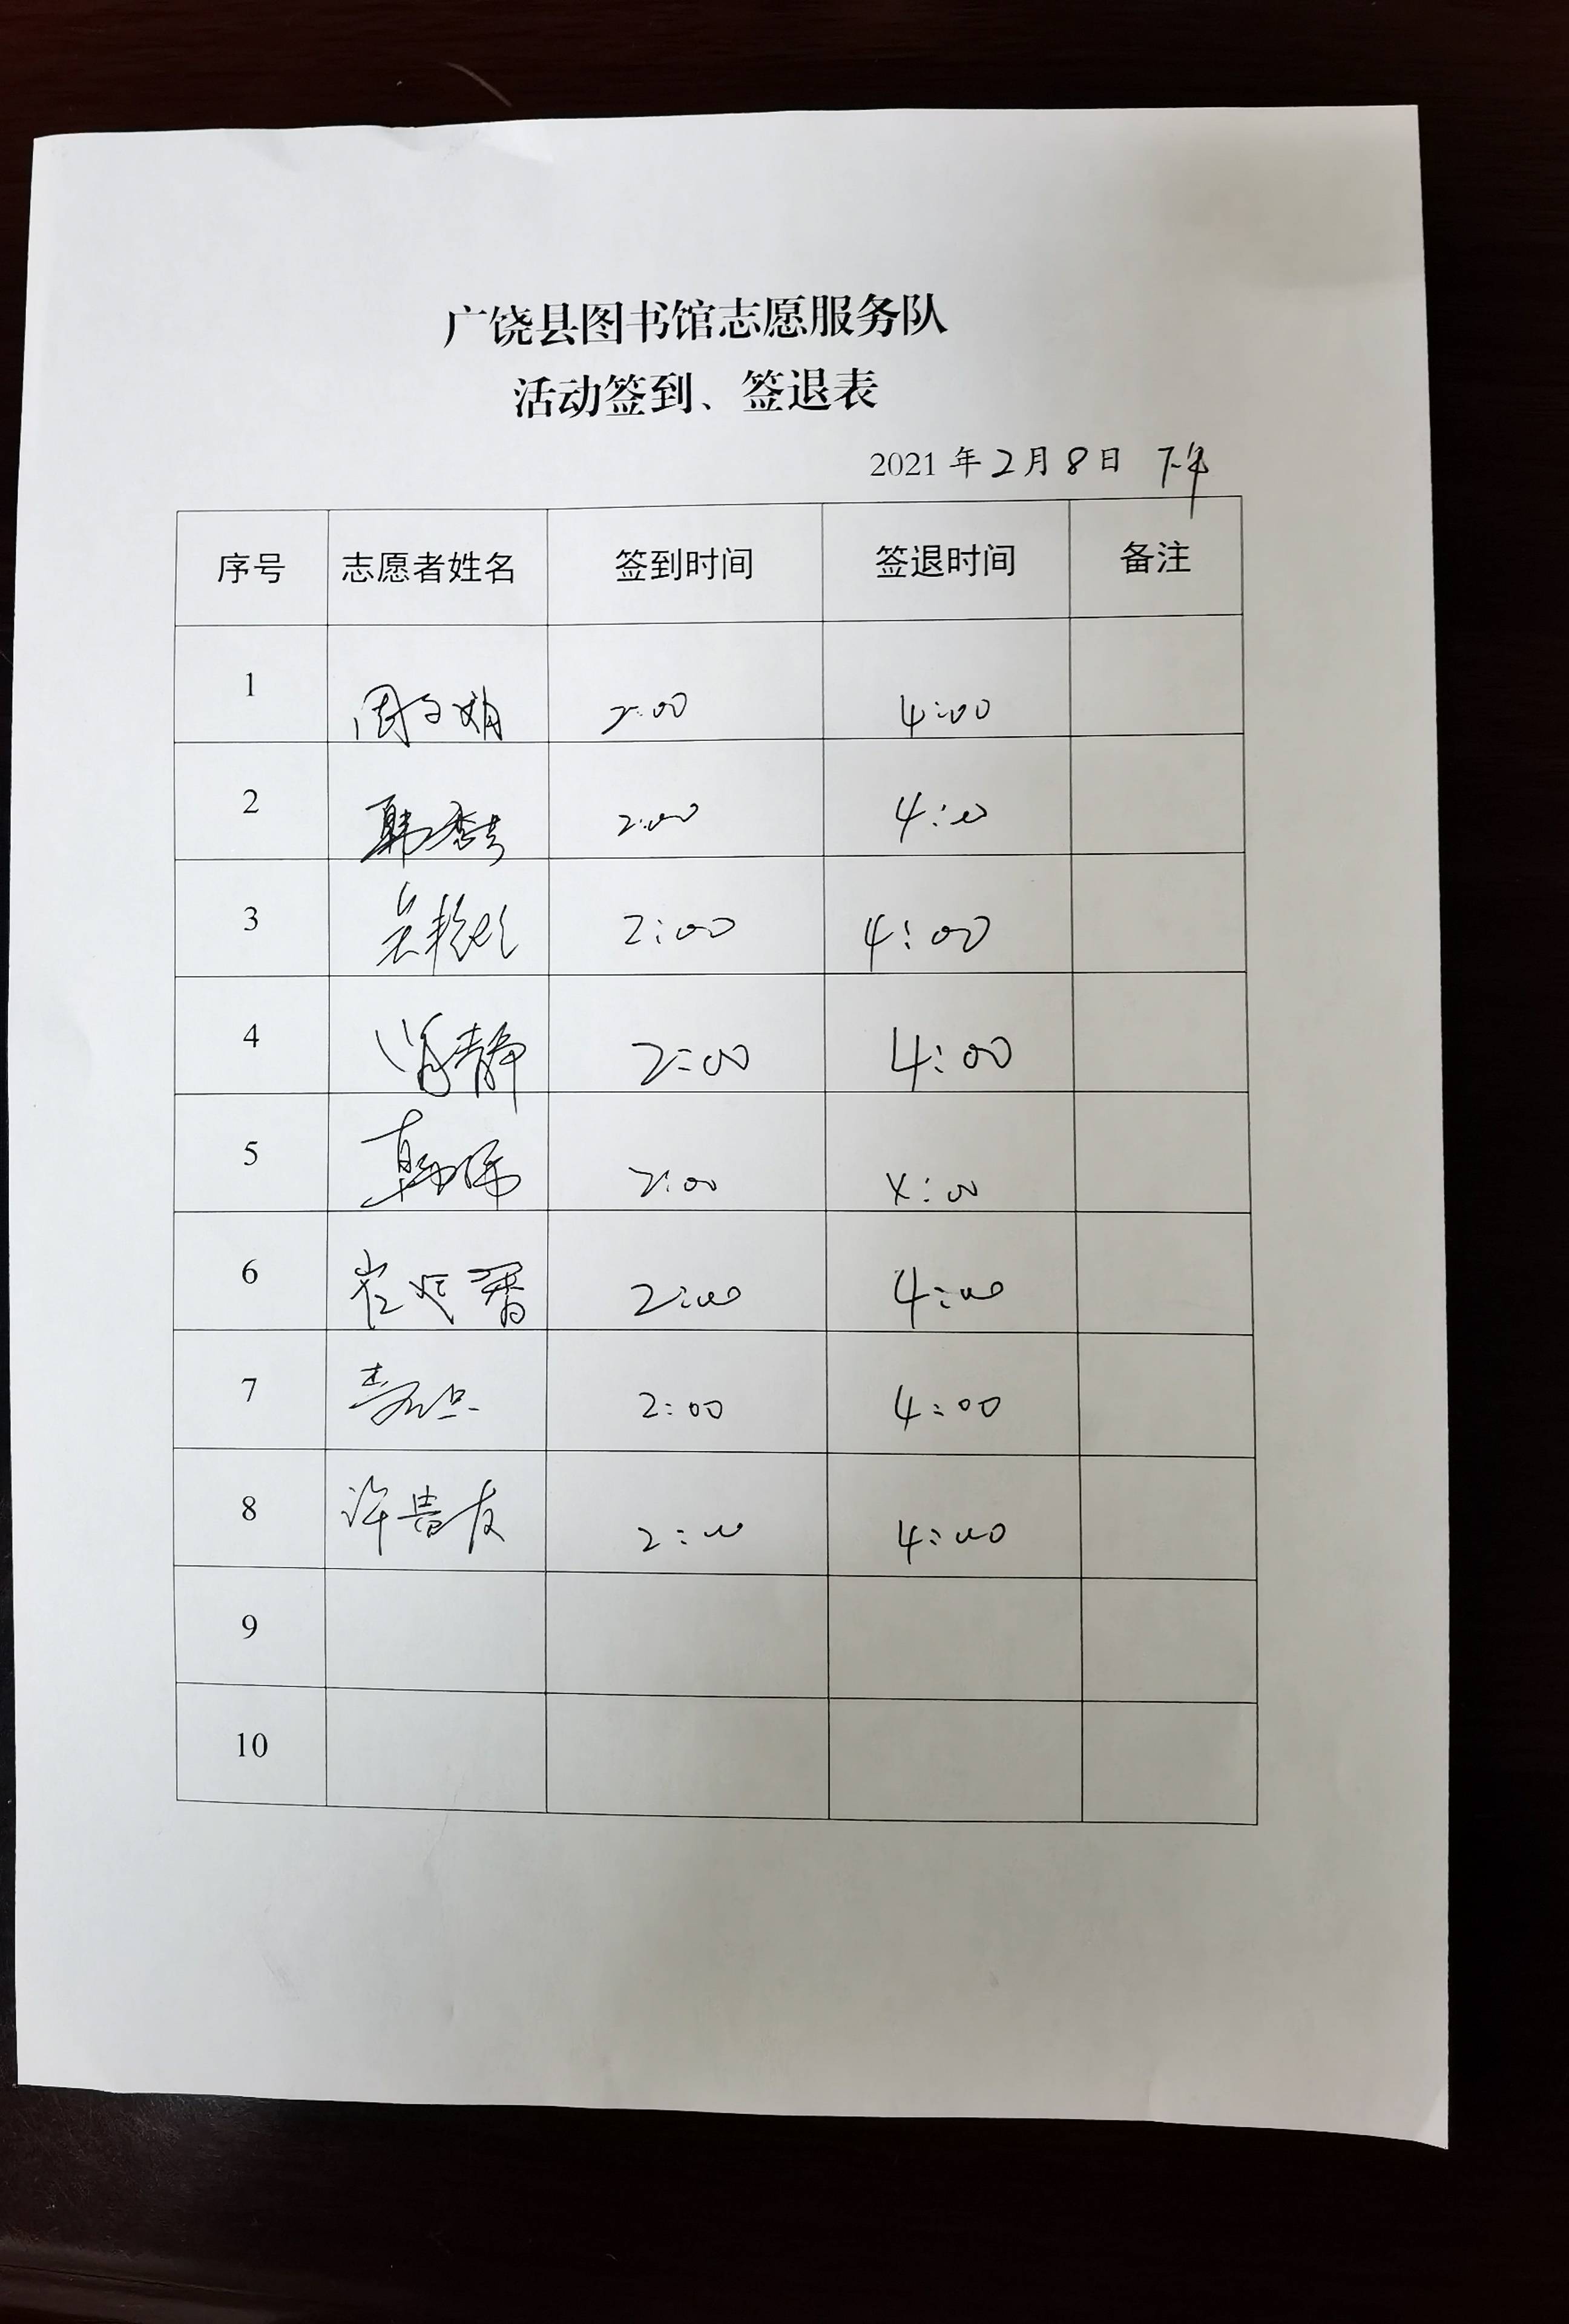 广饶县图书馆志愿服务队
活动签到、签退表
2021年2月8日 下午
序号 志愿者姓名 签到时间 签退时间 备注
1 2:00 4:00
2 2:00 4:00
3 2:00 4:00
4 肖静 2:00 4:00
5 韩伟 2:00 4:00
6 2:00 4:00
7 2:00 4:00
8 许贵友 2:00 4:00
9
10